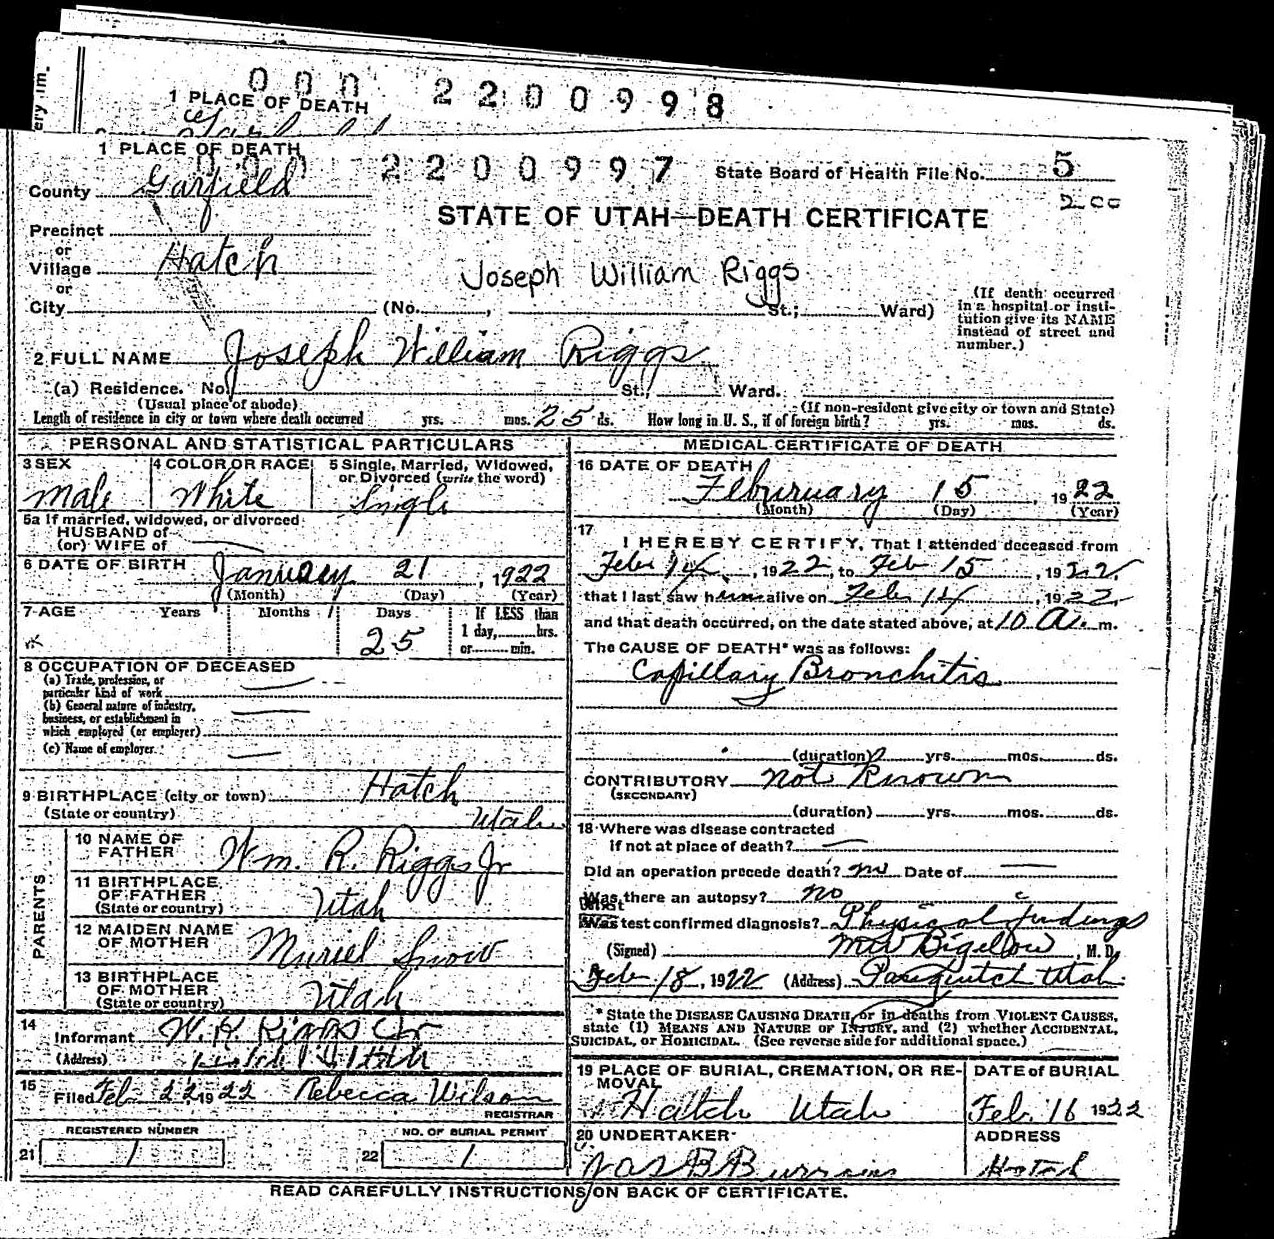 ery im.
000 2200998
1 PLACE OF DEATH
1 PLACE OF DEATH
000 2200997
State Board of Health File No. 5
County Garfield
200
STATE OF UTAH—DEATH CERTIFICATE
Precinct
or
Village Hatch
Joseph William Riggs
or
City (No. , St.; Ward)
(If death occurred in a hospital or institution give its NAME instead of street and number.)
2 FULL NAME Joseph William Riggs
(a) Residence. No. St., Ward.
(Usual place of abode) (If non-resident give city or town and State)
Length of residence in city or town where death occurred yrs. mos. 25 ds. How long in U. S., if of foreign birth? yrs. mos. ds.
PERSONAL AND STATISTICAL PARTICULARS
3 SEX
Male
4 COLOR OR RACE
White
5 Single, Married, Widowed, or Divorced (write the word)
Single
5a If married, widowed, or divorced
HUSBAND of
(or) WIFE of
6 DATE OF BIRTH January 21, 1922
(Month) (Day) (Year)
7 AGE Years Months Days If LESS than
25 1 day, hrs.
or min.
8 OCCUPATION OF DECEASED
(a) Trade, profession, or
particular kind of work
(b) General nature of industry,
business, or establishment in
which employed (or employer)
(c) Name of employer
9 BIRTHPLACE (city or town) Hatch
(State or country) Utah
PARENTS
10 NAME OF
FATHER Wm. R. Riggs Jr
11 BIRTHPLACE
OF FATHER
(State or country) Utah
12 MAIDEN NAME
OF MOTHER Muriel Snow
13 BIRTHPLACE
OF MOTHER
(State or country) Utah
14
Informant W. R. Riggs Jr
(Address) Hatch Utah
15
Filed Feb 22 1922 Rebecca Wilson
REGISTRAR
REGISTERED NUMBER NO. OF BURIAL PERMIT
21 1 22 1
MEDICAL CERTIFICATE OF DEATH
16 DATE OF DEATH
Februrary 15, 1922
(Month) (Day) (Year)
17
I HEREBY CERTIFY, That I attended deceased from
Feb 14, 1922, to Feb 15, 1922,
that I last saw him alive on Feb 14, 1922,
and that death occurred, on the date stated above, at 10 A. m.
The CAUSE OF DEATH* was as follows:
Capillary Bronchitis
(duration) yrs. mos. ds.
CONTRIBUTORY not Known
(SECONDARY)
(duration) yrs. mos. ds.
18 Where was disease contracted
if not at place of death?
Did an operation precede death? no Date of
Was there an autopsy? no
What test confirmed diagnosis? Physical findings
(Signed) Bigelow, M. D.
Feb 18, 1922 (Address) Panguitch Utah
* State the DISEASE CAUSING DEATH, or in deaths from VIOLENT CAUSES,
state (1) MEANS AND NATURE OF INJURY, and (2) whether ACCIDENTAL,
SUICIDAL, or HOMICIDAL. (See reverse side for additional space.)
19 PLACE OF BURIAL, CREMATION, OR RE-
MOVAL
Hatch Utah
DATE of BURIAL
Feb. 16 1922
20 UNDERTAKER
Jas B Burrows
ADDRESS
Hatch
READ CAREFULLY INSTRUCTIONS ON BACK OF CERTIFICATE.